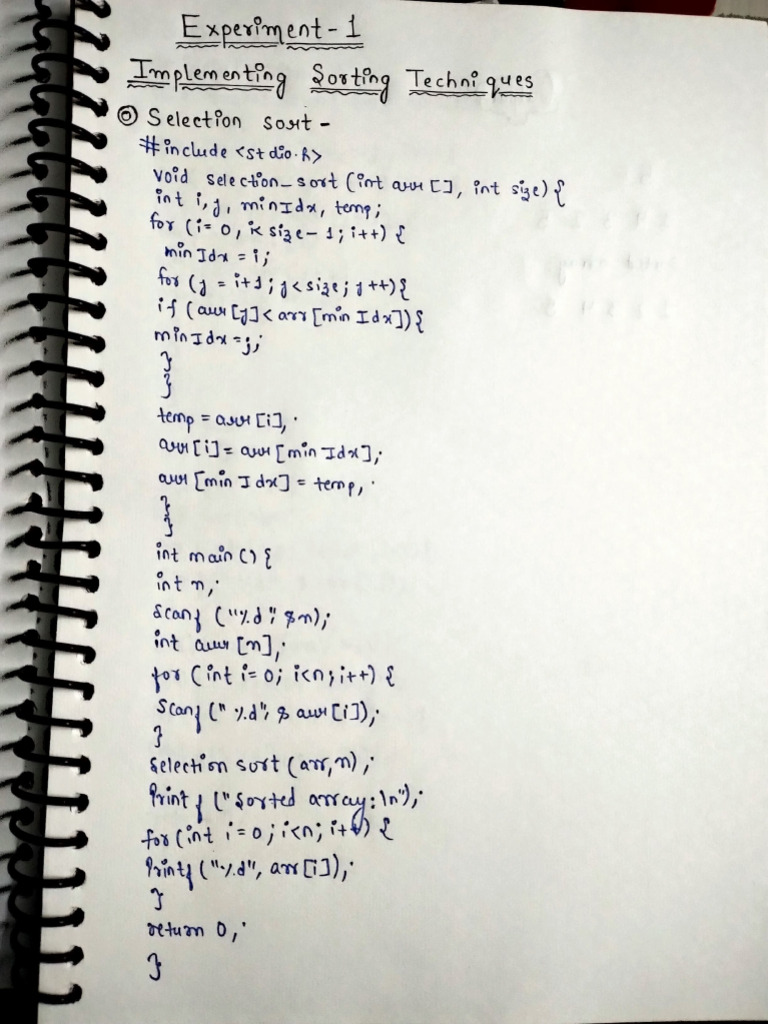 Experiment-1
Implementing Sorting Techniques
Selection sort -
#include <stdio.h>
void selection_sort (int arr [], int size) {
int i, j, minIdx, temp;
for (i= 0, i< size- 1; i++) {
minIdx = i;
for (j = i+1; j<size; j++){
if (arr [j]< arr [minIdx]){
minIdx =j;
}
}
temp = arr [i];
arr [i]= arr [minIdx];
arr [minIdx] = temp;
}
}
int main () {
int n;
scanf ("%d", &n);
int arr [n];
for (int i= 0; i<n; i++) {
scanf (" %d", & arr [i]);
}
selection sort (arr,n);
Printf ("Sorted array:\n");
for (int i=0; i<n; i++) {
Printf ("%d", arr [i]);
}
return 0;
}